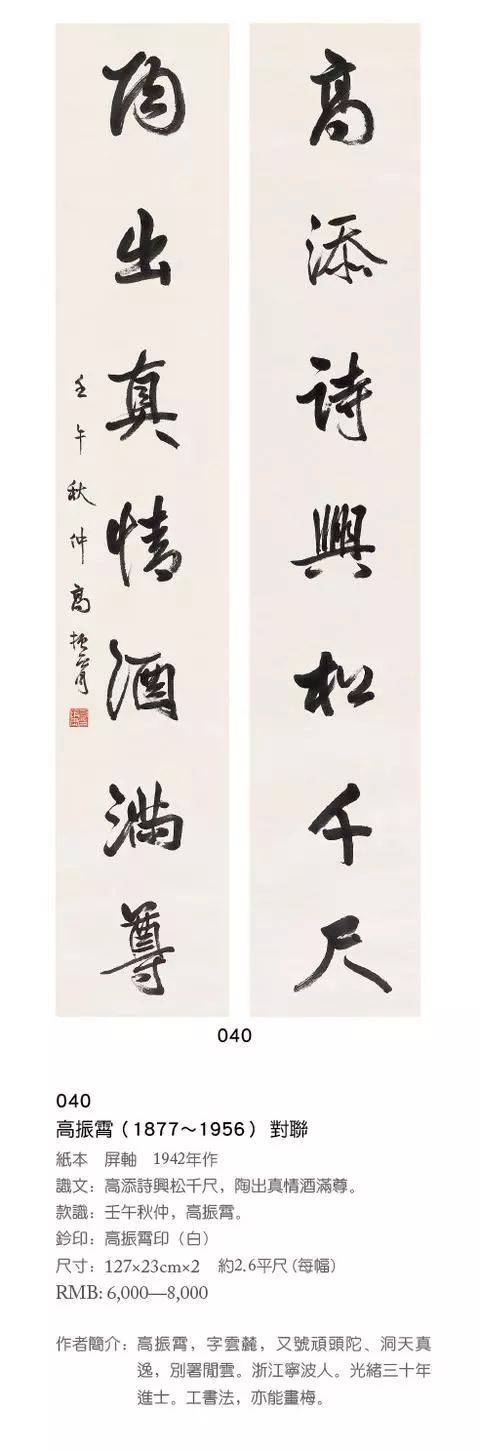 高添詩興松千尺
陶出真情酒滿尊
壬午秋仲高振霄
040
040
高振霄（1877～1956） 對聯
紙本 屏軸 1942年作
識文：高添詩興松千尺，陶出真情酒滿尊。
款識：壬午秋仲，高振霄。
鈐印：高振霄印（白）
尺寸：127×23cm×2 約2.6平尺（每幅）
RMB: 6,000—8,000
作者簡介：高振霄，字雲麓，又號頑頭陀、洞天真
逸，別署閒雲。浙江寧波人。光緒三十年
進士。工書法，亦能畫梅。